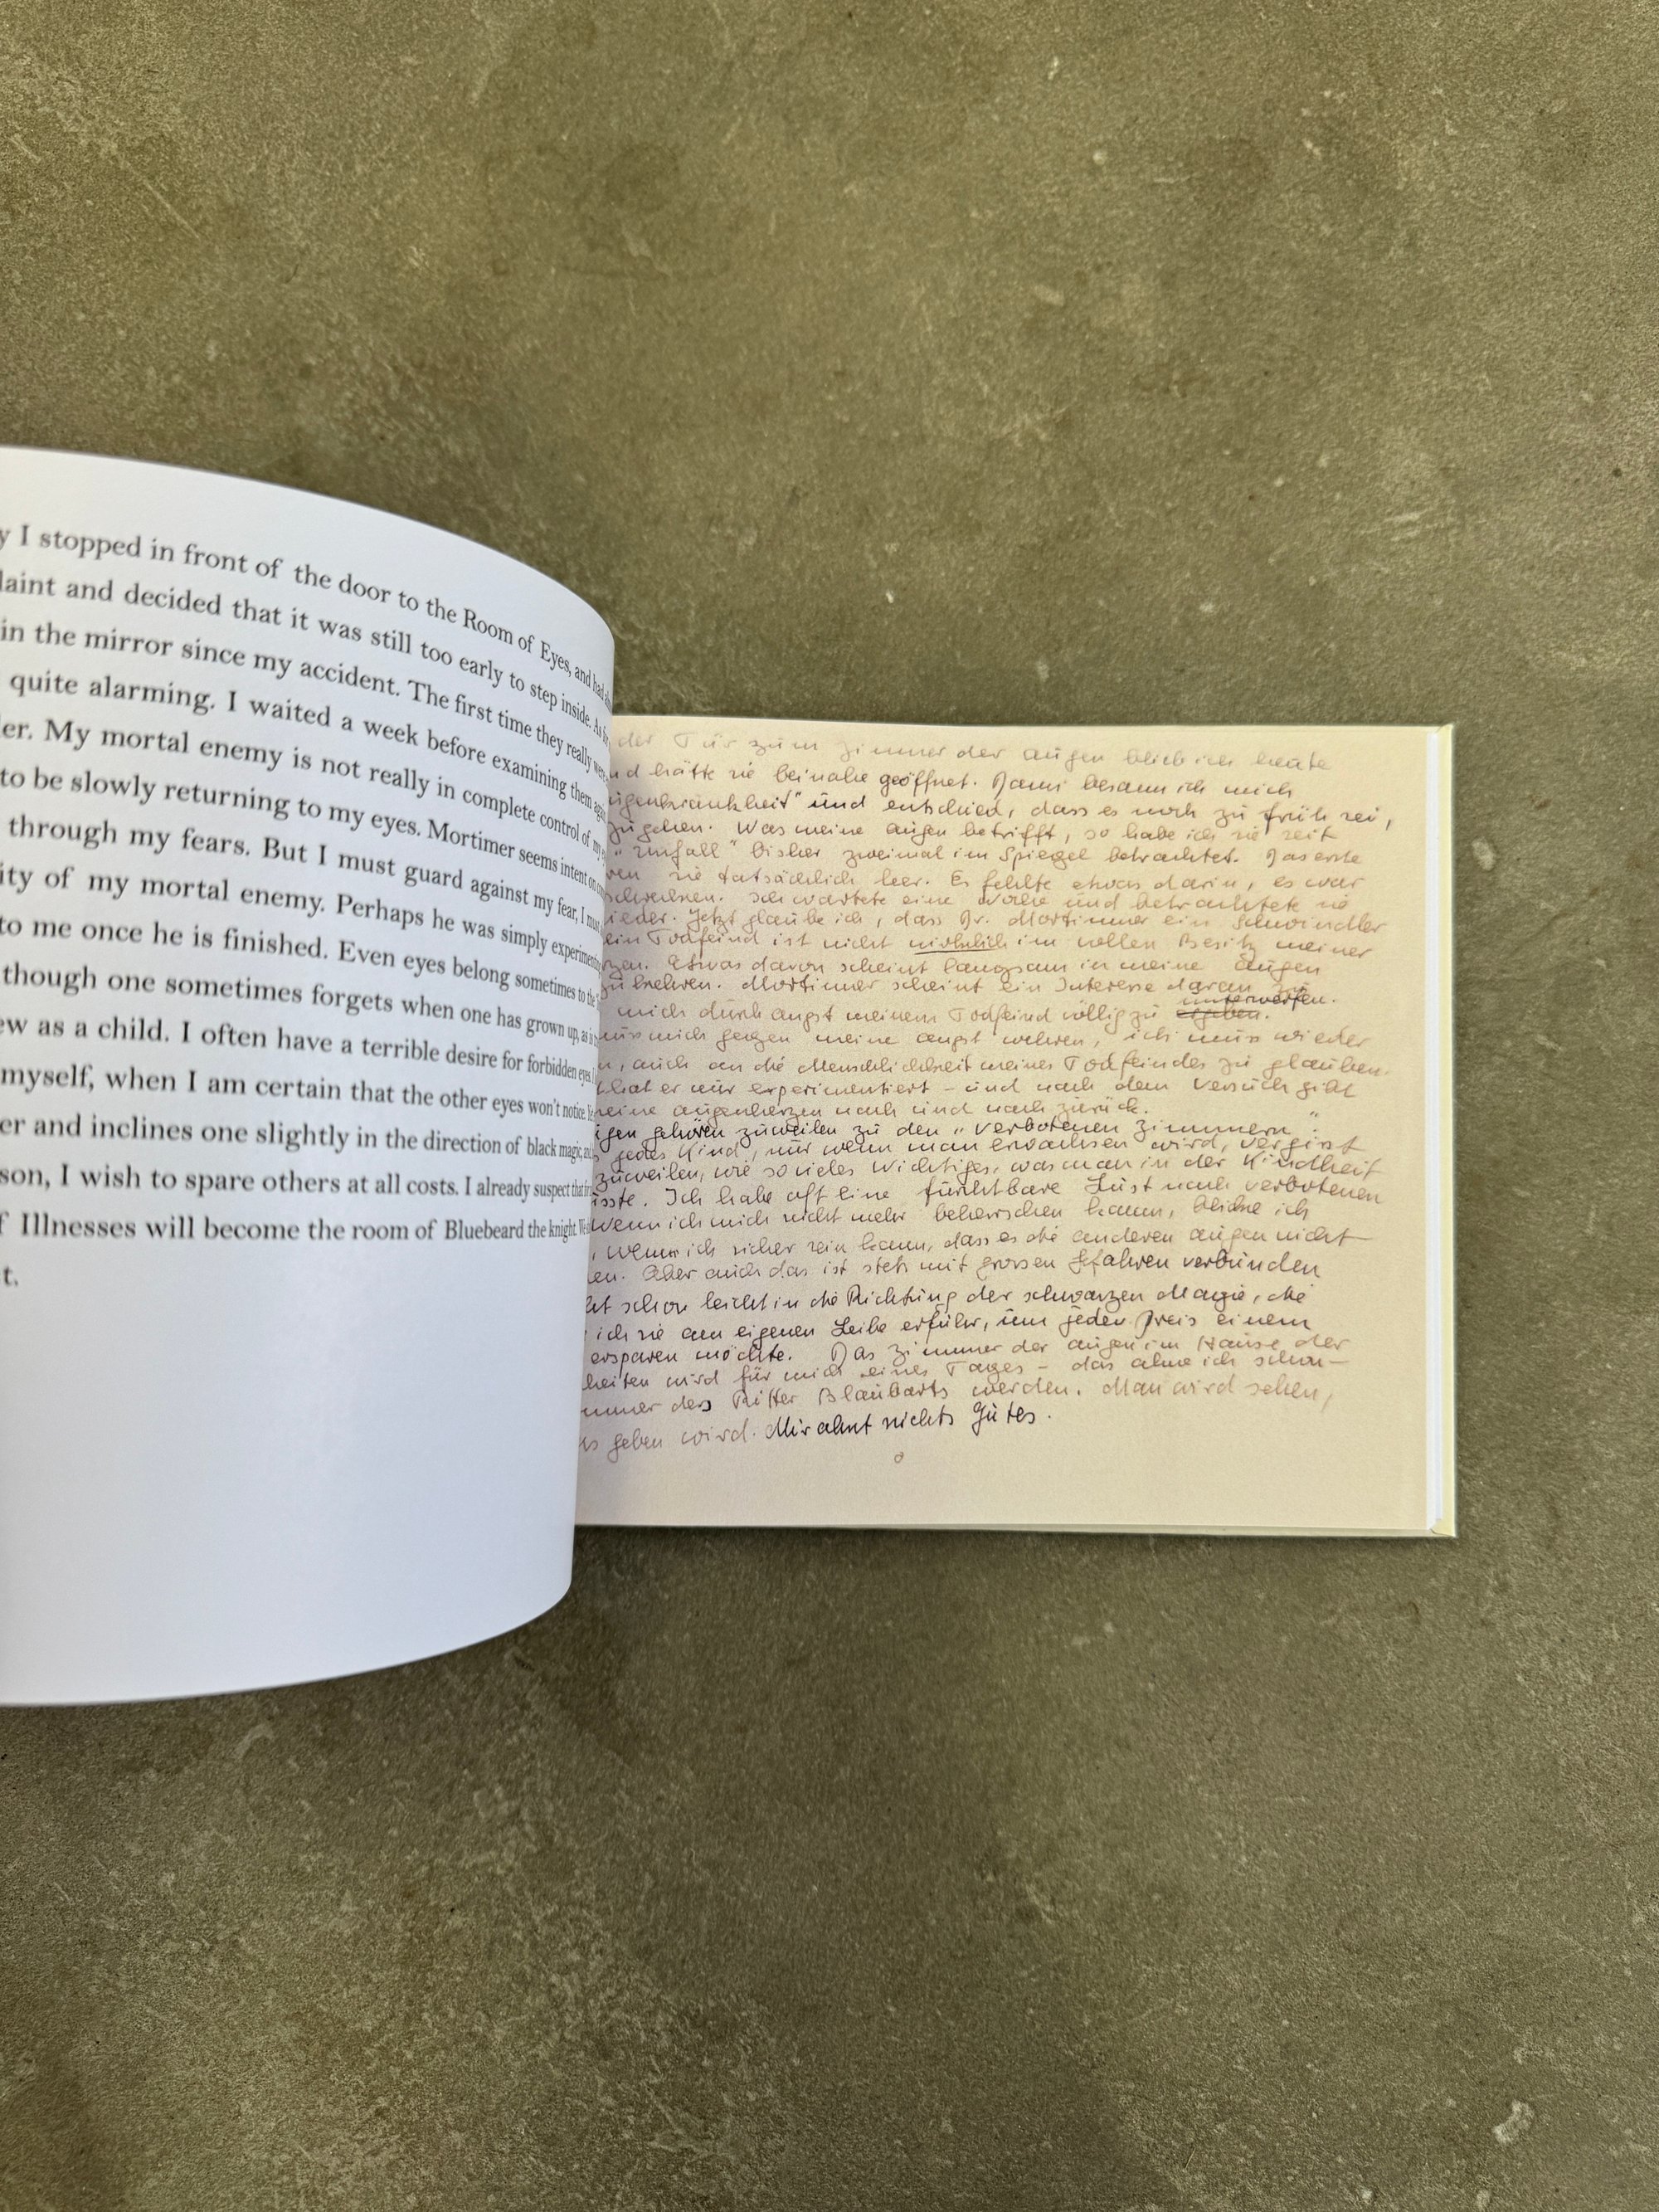 I stopped in front of the door to the Room of Eyes, and had
laint and decided that it was still too early to step inside. As
in the mirror since my accident. The first time they really were
quite alarming. I waited a week before examining them again
er. My mortal enemy is not really in complete control of my
to be slowly returning to my eyes. Mortimer seems intent on
through my fears. But I must guard against my fear, I must
ity of my mortal enemy. Perhaps he was simply experimenting
to me once he is finished. Even eyes belong sometimes to the
though one sometimes forgets when one has grown up, as is
ew as a child. I often have a terrible desire for forbidden eyes
myself, when I am certain that the other eyes won't notice.
er and inclines one slightly in the direction of black magic, and
son, I wish to spare others at all costs. I already suspect that
f Illnesses will become the room of Bluebeard the knight.
t.
der Tür zum Zimmer der Augen blieb ich heute
nd hätte sie beinahe geöffnet. Dann besann ich mich
ugenkrankheit" und entschied, dass es noch zu früh sei,
zugehen. Was meine Augen betrifft, so habe ich sie seit
"Unfall" bisher zweimal im Spiegel betrachtet. Das erste
ren sie tatsächlich leer. Es fehlte etwas darin, es war
schrecken. Ich wartete eine Woche und betrachtete sie
ieder. Jetzt glaube ich, dass Dr. Mortimer ein Schwindler
ein Todfeind ist nicht wirklich im vollen Besitz meiner
rzen. Etwas davon scheint langsam in meine Augen
zukehren. Mortimer scheint ein Interesse daran zu
unterwerfen.
mich durch Angst meinem Todfeind völlig zu ergeben.
mich gegen meine Angst wehren, ich muss wieder
n, auch an die Menschlichkeit meines Todfeindes zu glauben.
hat er nur experimentiert – und nach dem Versuch gibt
meine Augenherzen nach und nach zurück.
ugen gehören zuweilen zu den "verbotenen Zimmern".
s jedes Kind, nur wenn man erwachsen wird, vergisst
zuweilen, wie so vieles Wichtiges, was man in der Kindheit
sste. Ich habe oft eine furchtbare Lust nach verbotenen
Wenn ich mich nicht mehr beherrschen kann, blicke ich
, wenn ich sicher sein kann, dass es die anderen Augen nicht
en. Aber auch das ist stets mit grossen Gefahren verbunden
ht schon leicht in die Richtung der schwarzen Magie, die
ich sie am eigenen Leibe erfuhr, um jeden Preis einem
ersparen möchte. Das Zimmer der Augen im Hause der
heiten wird für mich eines Tages – das ahne ich schon –
mmer des Ritter Blaubarts werden. Man wird sehen,
es geben wird. Mir ahnt nichts Gutes.